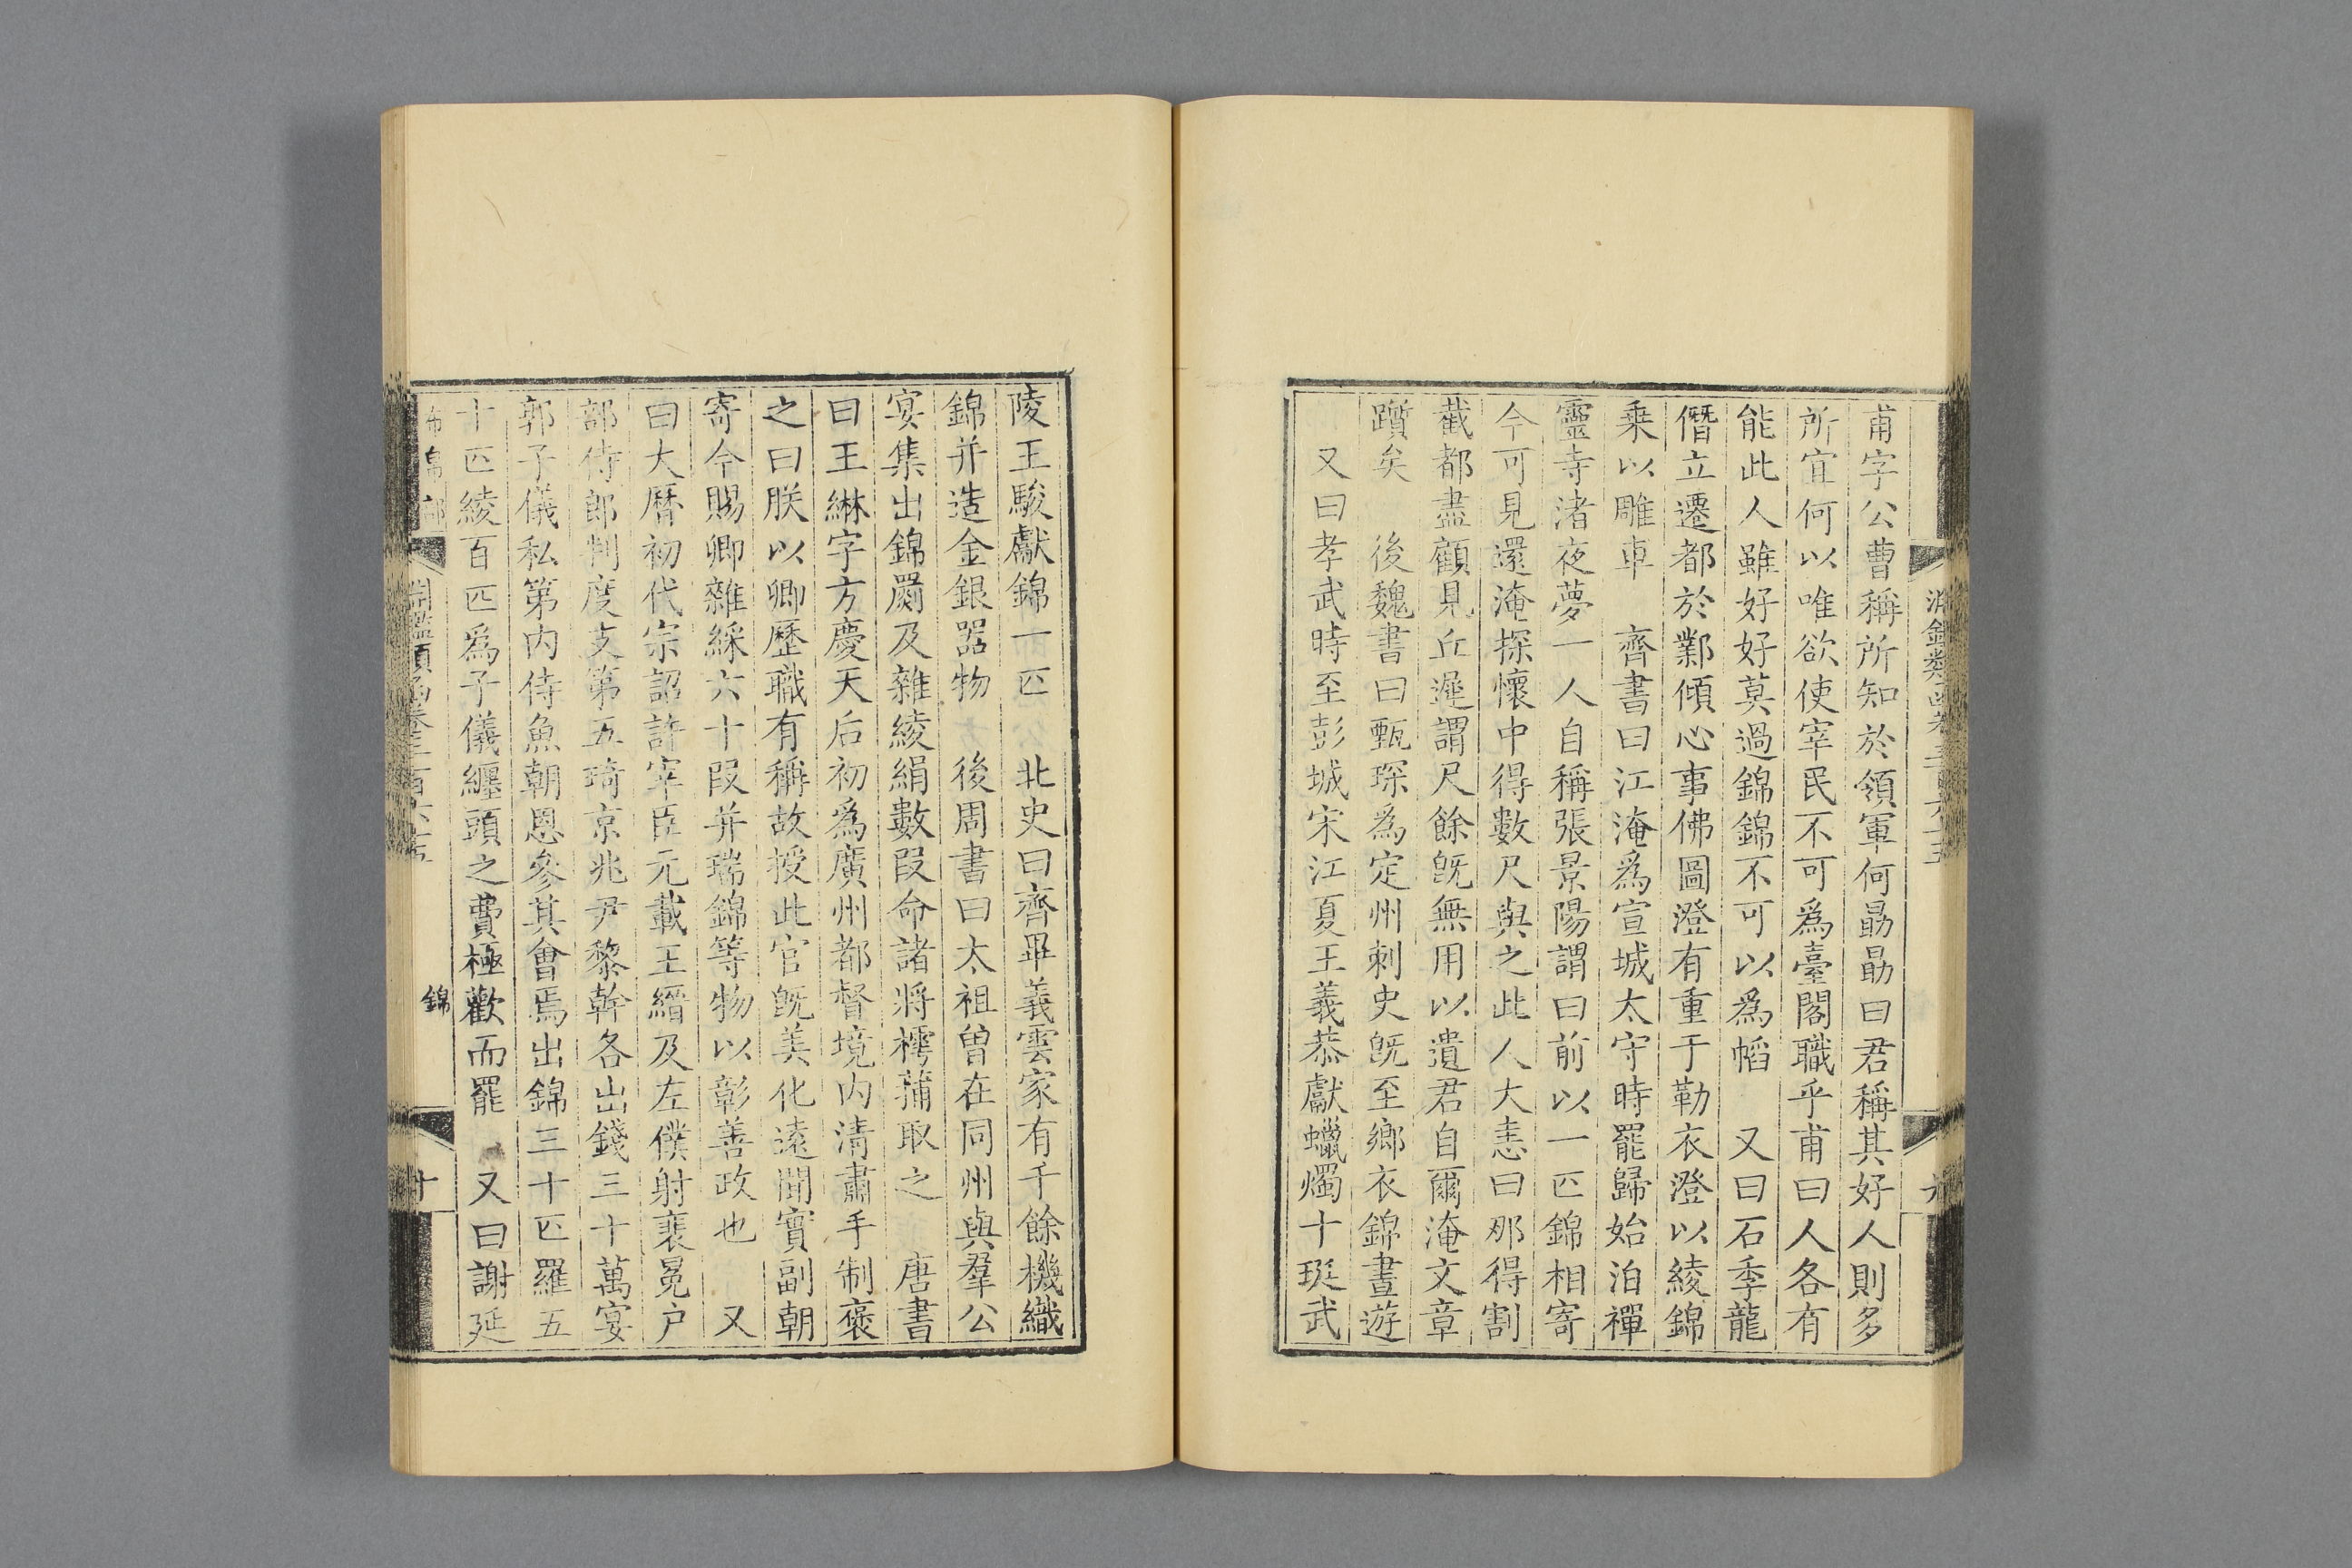 甫字公曹稱所知於領軍何勗勗曰君稱其好人則多
所宜何以唯欲使宰民不可爲臺閣職乎甫曰人各有
能此人雖好好莫過錦錦不可以爲幍　又曰石季龍
僭立遷都於鄴傾心事佛圖澄有重于勒衣澄以綾錦
乗以雕車　齊書曰江淹爲宣城太守時罷歸始泊禪
靈寺渚夜夢一人自稱張景陽謂曰前以一匹錦相寄
今可見還淹探懷中得數尺與之此人大恚曰那得割
截都盡顧見丘遲謂尺餘旣無用以遺君自爾淹文章
躓矣　後魏書曰甄琛爲定州刺史旣至鄉衣錦晝遊
又曰孝武時至彭城宋江夏王義恭獻蠟燭十珽武
陵王駿獻錦一匹　北史曰齊畢義雲家有千餘機織
錦并造金銀器物　後周書曰太祖曾在同州與羣公
宴集出錦罽及雜綾絹數叚命諸將樗蒱取之　唐書
曰王綝字方慶天后初爲廣州都督境内清肅手制褒
之曰朕以卿歷職有稱故授此官旣美化遠聞實副朝
寄今賜卿雜綵六十叚并瑞錦等物以彰善政也　又
曰大曆初代宗詔許宰臣元載王縉及左僕射裴冕户
部侍郎判度支第五琦京兆尹黎幹各出錢三十萬宴
郭子儀私第内侍魚朝恩參其會焉出錦三十匹羅五
十匹綾百匹爲子儀纏頭之費極歡而罷　又曰謝延
布帛部　淵鑑類函卷三百六十五　錦　十